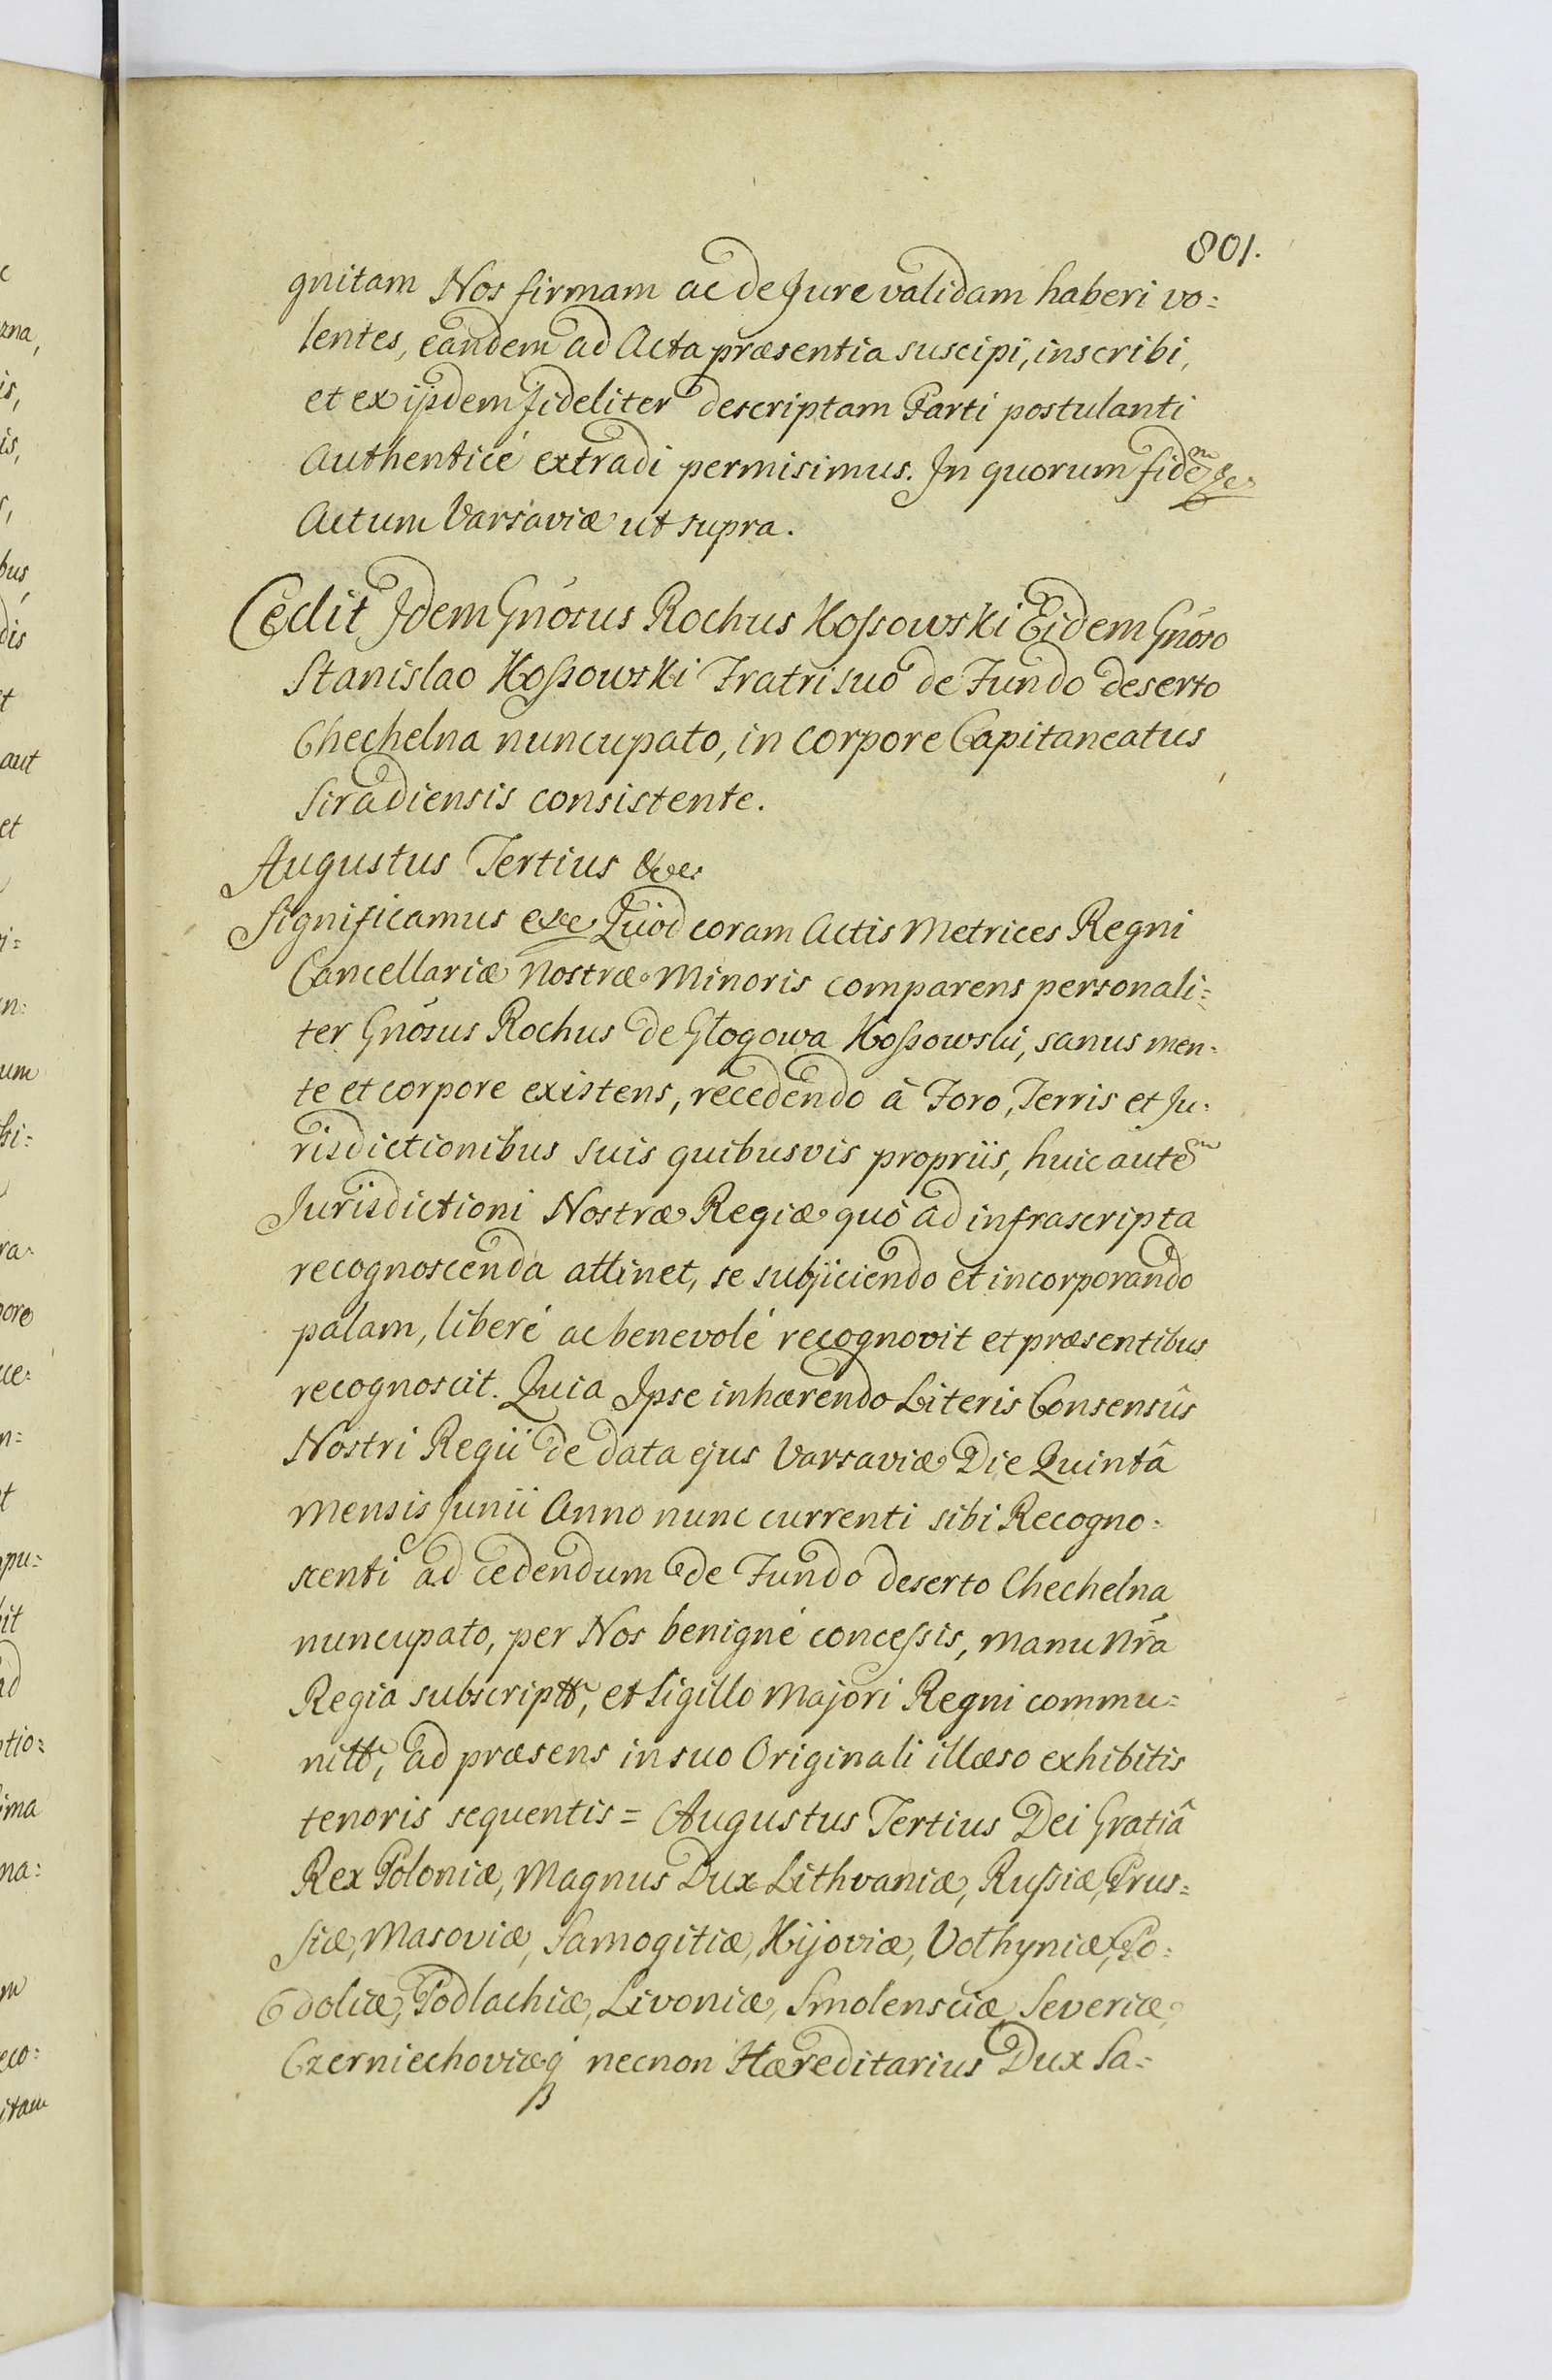 801.
gnitam Nos firmam ac de Jure validam haberi vo=
lentes, eandem ad Acta præsentia suscipi, inscribi,
et ex ijsdem fideliter descriptam Parti postulanti
Authenticé extradi permisimus. In quorum fidem &c.
Actum Varsaviæ ut supra.
Cedit Idem Gnõsus Rochus Kossowski Eidem Gnõso
Stanislao Kossowski Fratri suo de Fundo deserto
Chechelna nuncupato, in Corpore Capitaneatus
Siradiensis consistente.
Augustus Tertius &c.
Significamus &c. Quod coram Actis Metrices Regni
Cancellariæ Nostræ Minoris comparens personali=
ter Gnõsus Rochus de Głogowa Kossowski, sanus men=
te et corpore existens, recedendo à Foro, Terris et Ju=
risdictionibus suis quibusvis propriis, huic autem
Jurisdictioni Nostræ Regiæ quó ad infrascripta
recognoscenda attinet, se subjiciendo et incorporando
palam, liberé ac benevolé recognovit et præsentibus
recognoscit. Quia Ipse inhærendo Literis Consensûs
Nostri Regii de data ejus Varsaviæ Die Quintâ
Mensis Junii Anno nunc currenti sibi Recogno=
scenti ad cedendum de Fundo deserto Chechelna
nuncupato, per Nos benigné concessis, Manu Nrã
Regia subscriptt, et Sigillo Majori Regni commu=
nitt, ad præsens in suo Originali illæso exhibitis
tenoris sequentis = Augustus Tertius Dei Gratiâ
Rex Poloniæ, Magnus Dux Lithvaniæ, Russiæ, Prus=
siæ, Masoviæ, Samogitiæ, Kijoviæ, Vołhyniæ, Po=
doliæ, Podlachiæ, Livoniæ, Smolensciæ, Severiæ,
Czerniechoviæq́ necnon Hæreditarius Dux Sa=